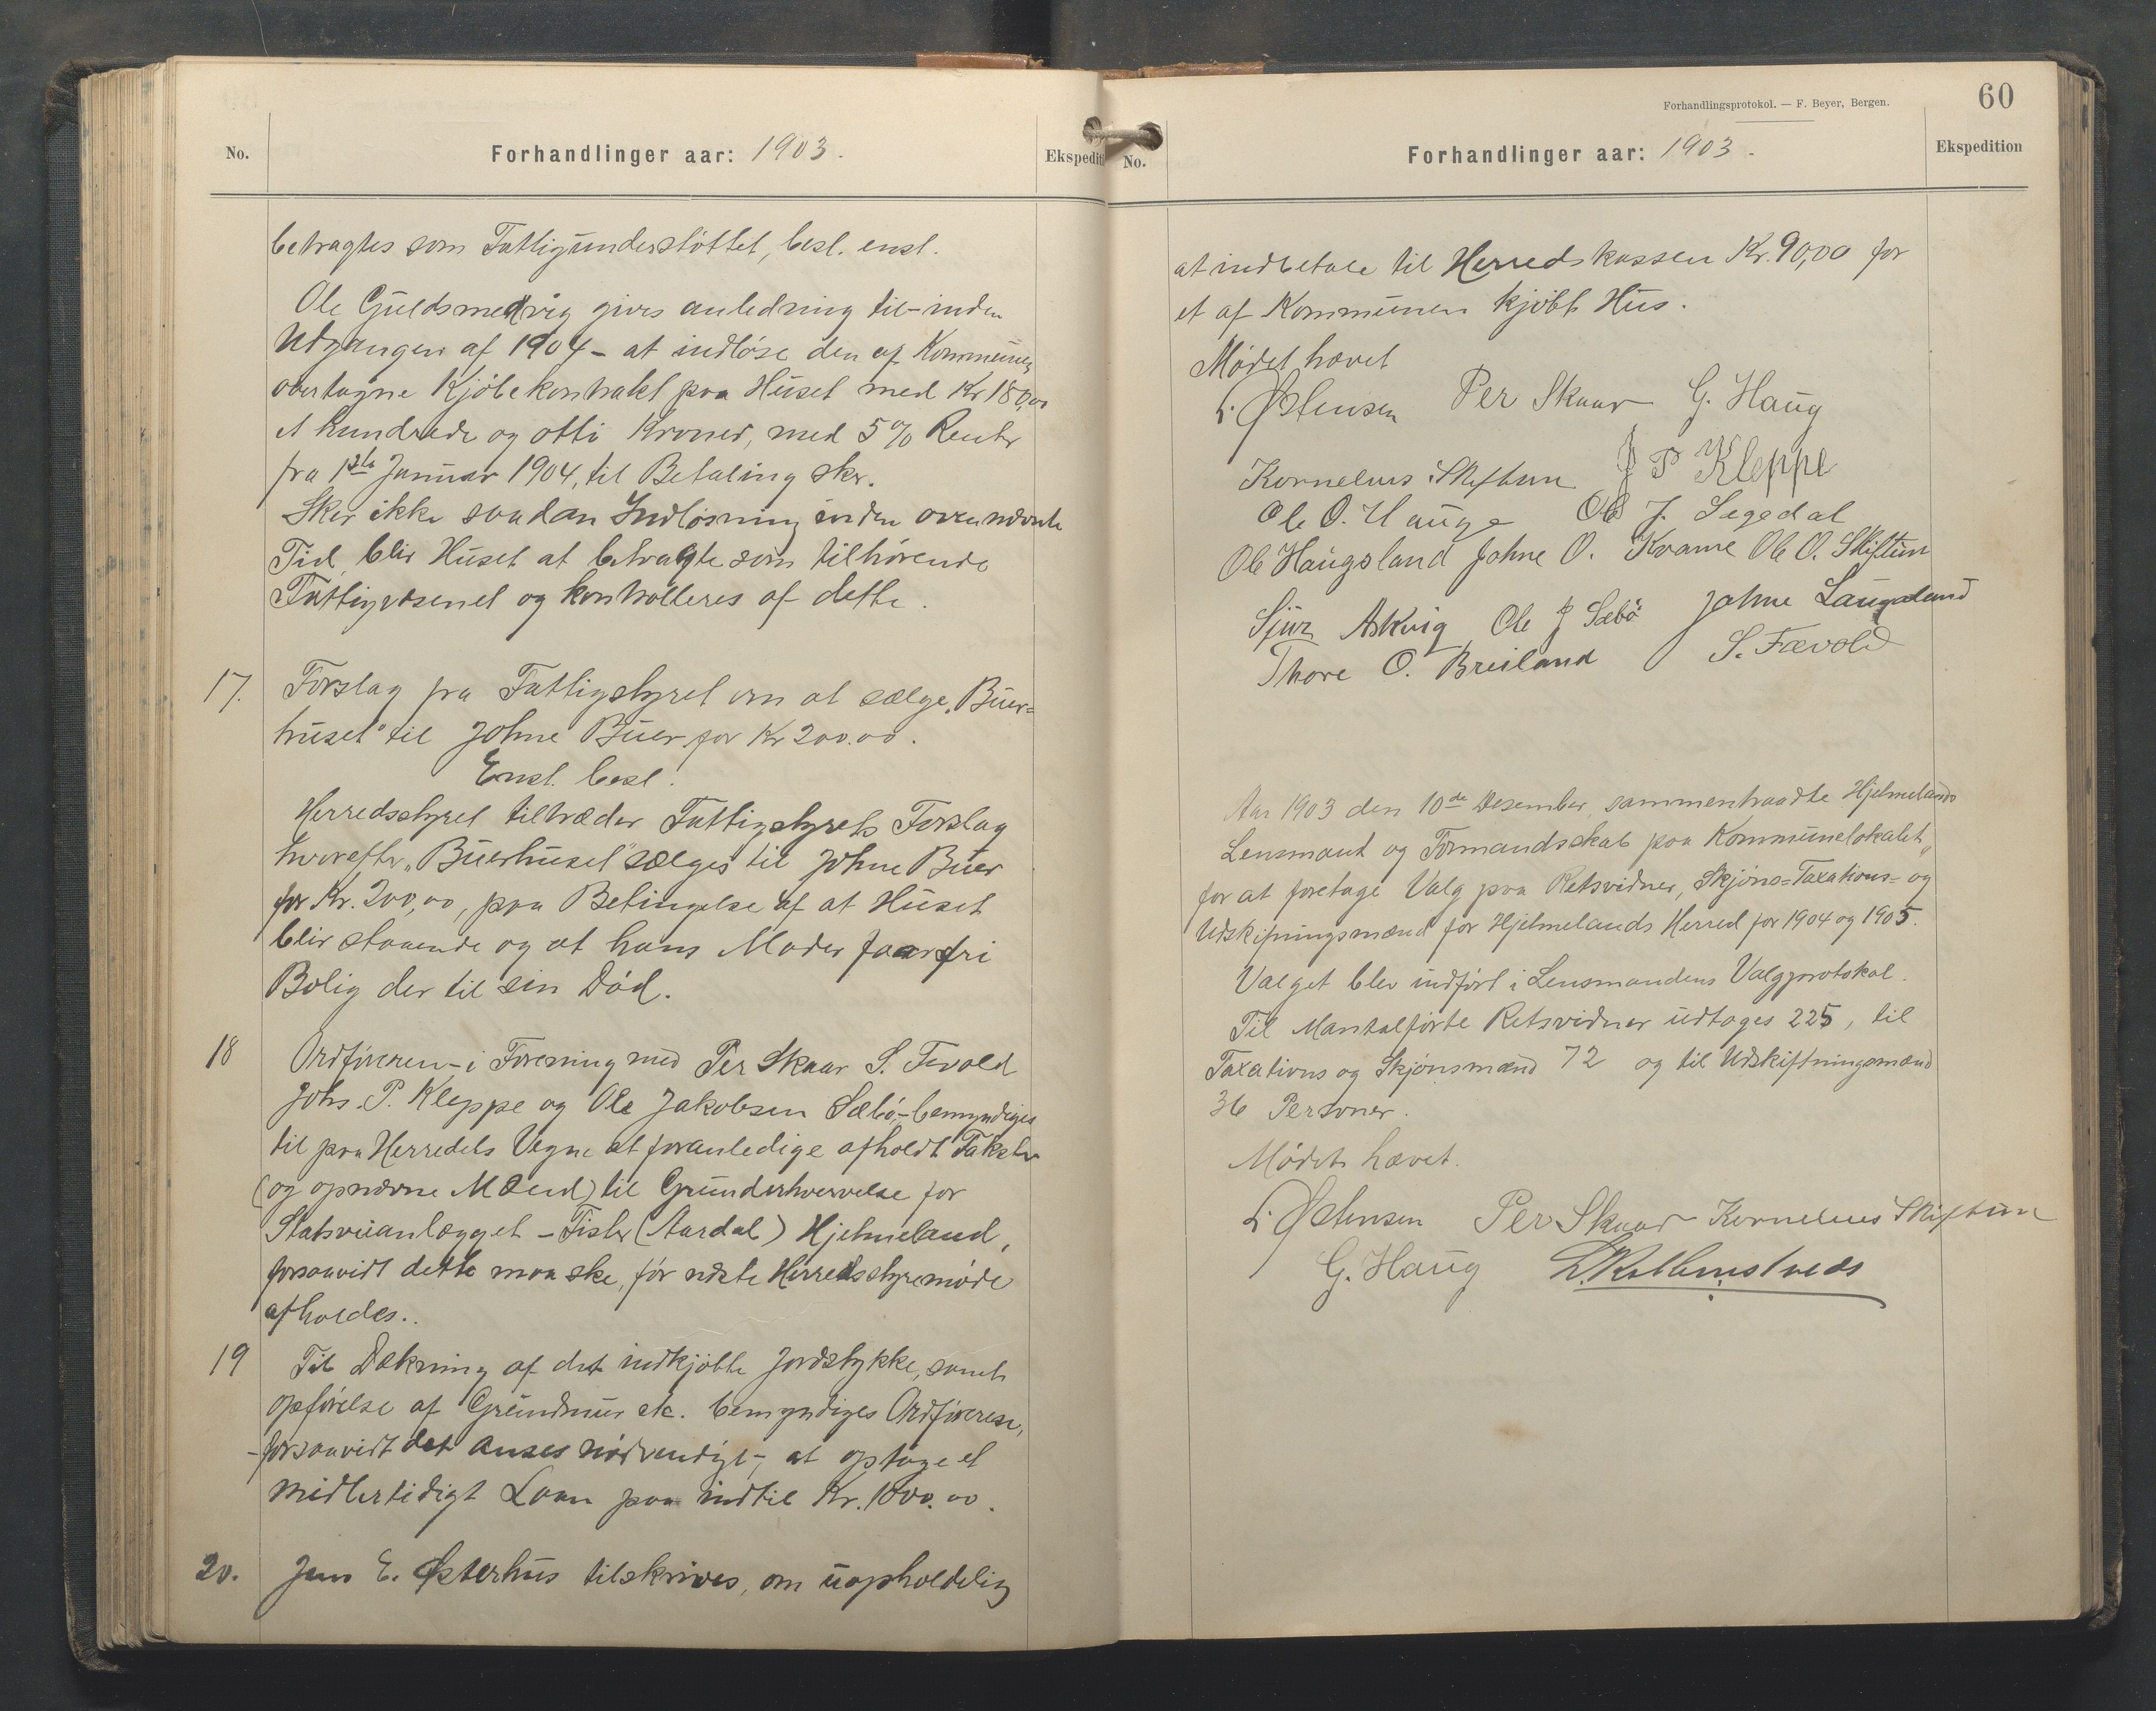 No.
Forhandlinger aar: 1903.
Ekspediti
betragtes som Fattigunderstøttet, besl. enst.
Ole Guldsmedvig gives anledning til - inden
Udgangen af 1904 - at indløse den af Kommunen
overtagne Kjøbekontrakt paa Huset med Kr 180,00
et hundrede og otti Kroner, med 5% Renter
fra 1ste Januar 1904, til Betaling sker.
Sker ikke saadan Indløsning inden ovennævnte
Tid, blir Huset at betragte som tilhørende
Fattigvæsenet og kontrolleres af dette.
17. Forslag fra Fattigstyret om at sælge "Buer=
huset" til Johne Buer for Kr 200.00.
Enst. besl.
Herredsstyret tiltræder Fattigstyrets Forslag
hvorefter "Buerhuset" sælges til Johne Buer
for Kr. 200,00, paa Betingelse af at Huset
blir staaende og at hans Moder faar fri
Bolig der til sin Død.
18 Ordføreren - i Forening med Per Skaar S. Fevold
Johs. P. Kleppe og Ole Jakobsen Sæbø, - bemyndiges
til paa Herredets Vegne at foranledige afholdt Takster
(og opnævne Mænd) til Grunderhvervelse for
Statsveianlægget - Fister (Aardal) Hjelmeland,
forsaavidt dette maa ske, før næste Herredsstyremøde
afholdes..
19 Til Dækning af det indkjøbte Jordstykke, samt
opførelse af Grundmur etc. bemyndiges Ordføreren,
- forsaavidt det anses nødvendigt -, at optage et
midlertidigt Laan paa indtil Kr. 1000.00.
20. Jens E. Østerhus tilskrives, om uopholdelig
Forhandlingsprotokol. — F. Beyer, Bergen.
60
No.
Forhandlinger aar: 1903.
Ekspedition
at indbetale til Herredskassen Kr. 90,00 for
et af Kommunen kjøbt Hus.
Mødet hævet
L. Østensen Per Skaar G. Haug
Kornelius Skiftun J P Kleppe
Ole O. Hauge Ole J. Segedal
Ole Haugsland Johne O. Kvame Ole O. Skiftun
Sjur Askvig Ole J Sæbø Johne Laugaland
Thore O. Breiland S. Fævold
Aar 1903 den 10de Desember sammentraadte Hjelmelands
Lensmand og Formandsskab paa Kommunelokalet,
for at foretage Valg paa Retsvidner, Skjøns=Taxations= og
Udskiftningsmænd for Hjelmelands Herred for 1904 og 1905.
Valget blev indført i Lensmandens Valgprotokol.
Til Mantalførte Retsvidner udtages 225, til
Taxations og Skjønsmænd 72 og til Udskiftningsmænd
36 Personer.
Mødet hævet.
L. Østensen Per Skaar Kornelius Skiftun
G. Haug